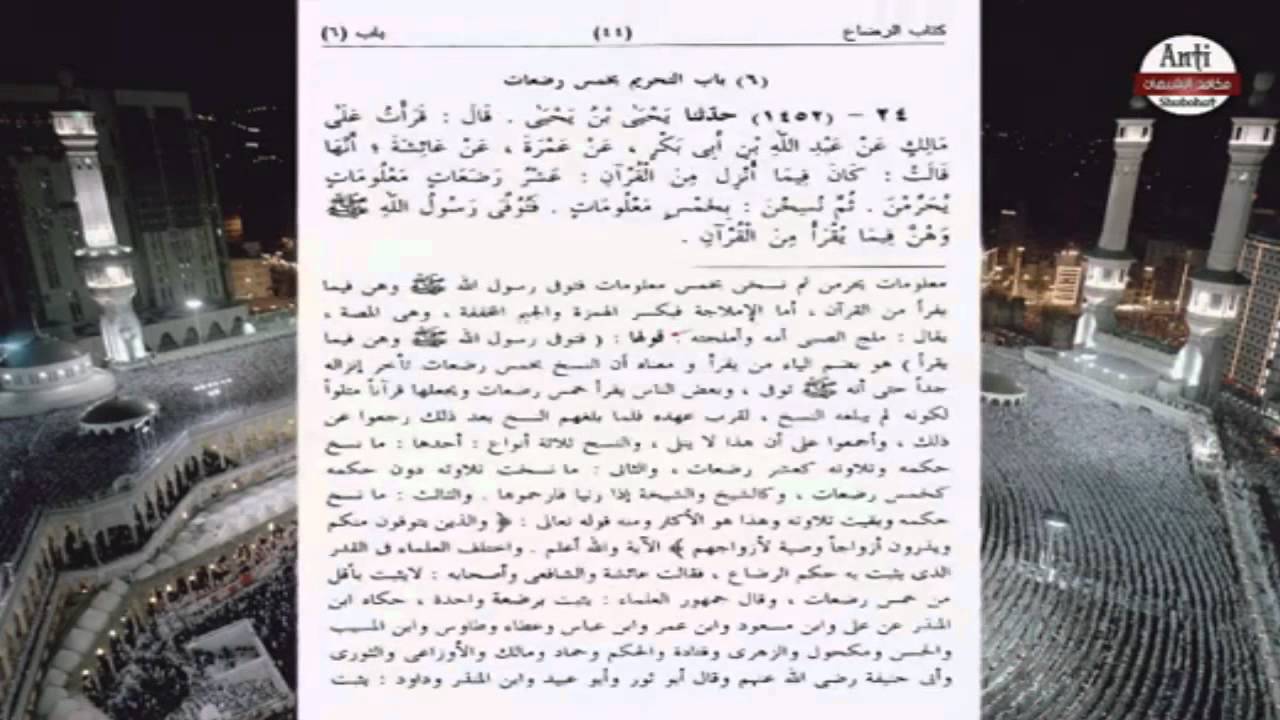 كتاب الرضاع (٤٤) باب (٦)
(٦) باب التحريم بخمس رضعات
٢٤ - (١٤٥٢) حدثنا يَحْيَىٰ بْنُ يَحْيَىٰ . قَالَ : قَرَأْتُ عَلَىٰ
مَالِكٍ عَنْ عَبْدِ اللَّهِ بْنِ أَبِى بَكْرٍ ، عَنْ عَمْرَةَ ، عَنْ عَائِشَةَ ؛ أَنَّهَا
قَالَتْ : كَانَ فِيمَا أُنْزِلَ مِنَ الْقُرْآنِ : عَشْرُ رَضَعَاتٍ مَعْلُومَاتٍ
يُحَرِّمْنَ . ثُمَّ نُسِخْنَ : بِخَمْسٍ مَعْلُومَاتٍ . فَتُوُفِّىَ رَسُولُ اللَّهِ ﷺ
وَهُنَّ فِيمَا يُقْرَأُ مِنَ الْقُرْآنِ .
معلومات يحرمن ثم نسخن بخمس معلومات فتوفى رسول الله ﷺ وهن فيما
يقرأ من القرآن ، أما الإملاجة فبكسر الهمزة والجيم المخففة ، وهى المصة ،
يقال : ملج الصبى أمه وأملجته . قولها : ( فتوفى رسول الله ﷺ وهن فيما
يقرأ ) هو بضم الياء من يقرأ و معناه أن النسخ بخمس رضعات تأخر إنزاله
جداً حتى أنه ﷺ توفى ، وبعض الناس يقرأ خمس رضعات ويجعلها قرآناً متلواً
لكونه لم يبلغه النسخ ، لقرب عهده فلما بلغهم النسخ بعد ذلك رجعوا عن
ذلك ، وأجمعوا على أن هذا لا يتلى ، والنسخ ثلاثة أنواع : أحدها : ما نسخ
حكمه وتلاوته كعشر رضعات ، والثانى : ما نسخت تلاوته دون حكمه
كخمس رضعات ، وكالشيخ والشيخة إذا زنيا فارجموها . والثالث : ما نسخ
حكمه وبقيت تلاوته وهذا هو الأكثر ومنه قوله تعالى : ﴿ والذين يتوفون منكم
ويذرون أزواجاً وصية لأزواجهم ﴾ الآية والله أعلم . واختلف العلماء فى القدر
الذى يثبت به حكم الرضاع ، فقالت عائشة والشافعى وأصحابه : لايثبت بأقل
من خمس رضعات ، وقال جمهور العلماء : يثبت برضعة واحدة ، حكاه ابن
المنذر عن على وابن مسعود وابن عمر وابن عباس وعطاء وطاوس وابن المسيب
والحسن ومكحول والزهرى وقتادة والحكم وحماد ومالك والأوزاعى والثورى
وأبى حنيفة رضى الله عنهم وقال أبو ثور وأبو عبيد وابن المنذر وداود : يثبت
Anti
مكافح الشبهات
Shubohat